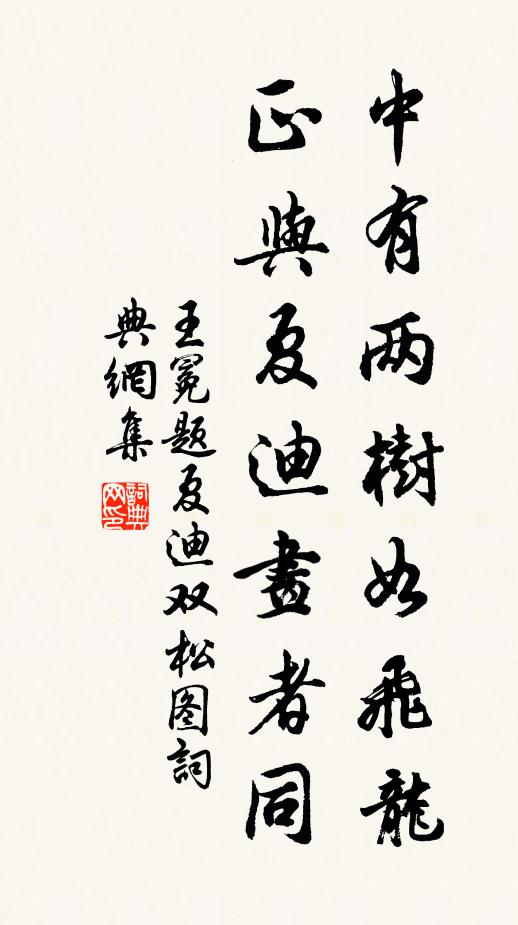 中有两樹如飛龍
正與夏迪畫者同
王冕题夏迪双松图詞
典網集
詞典网印